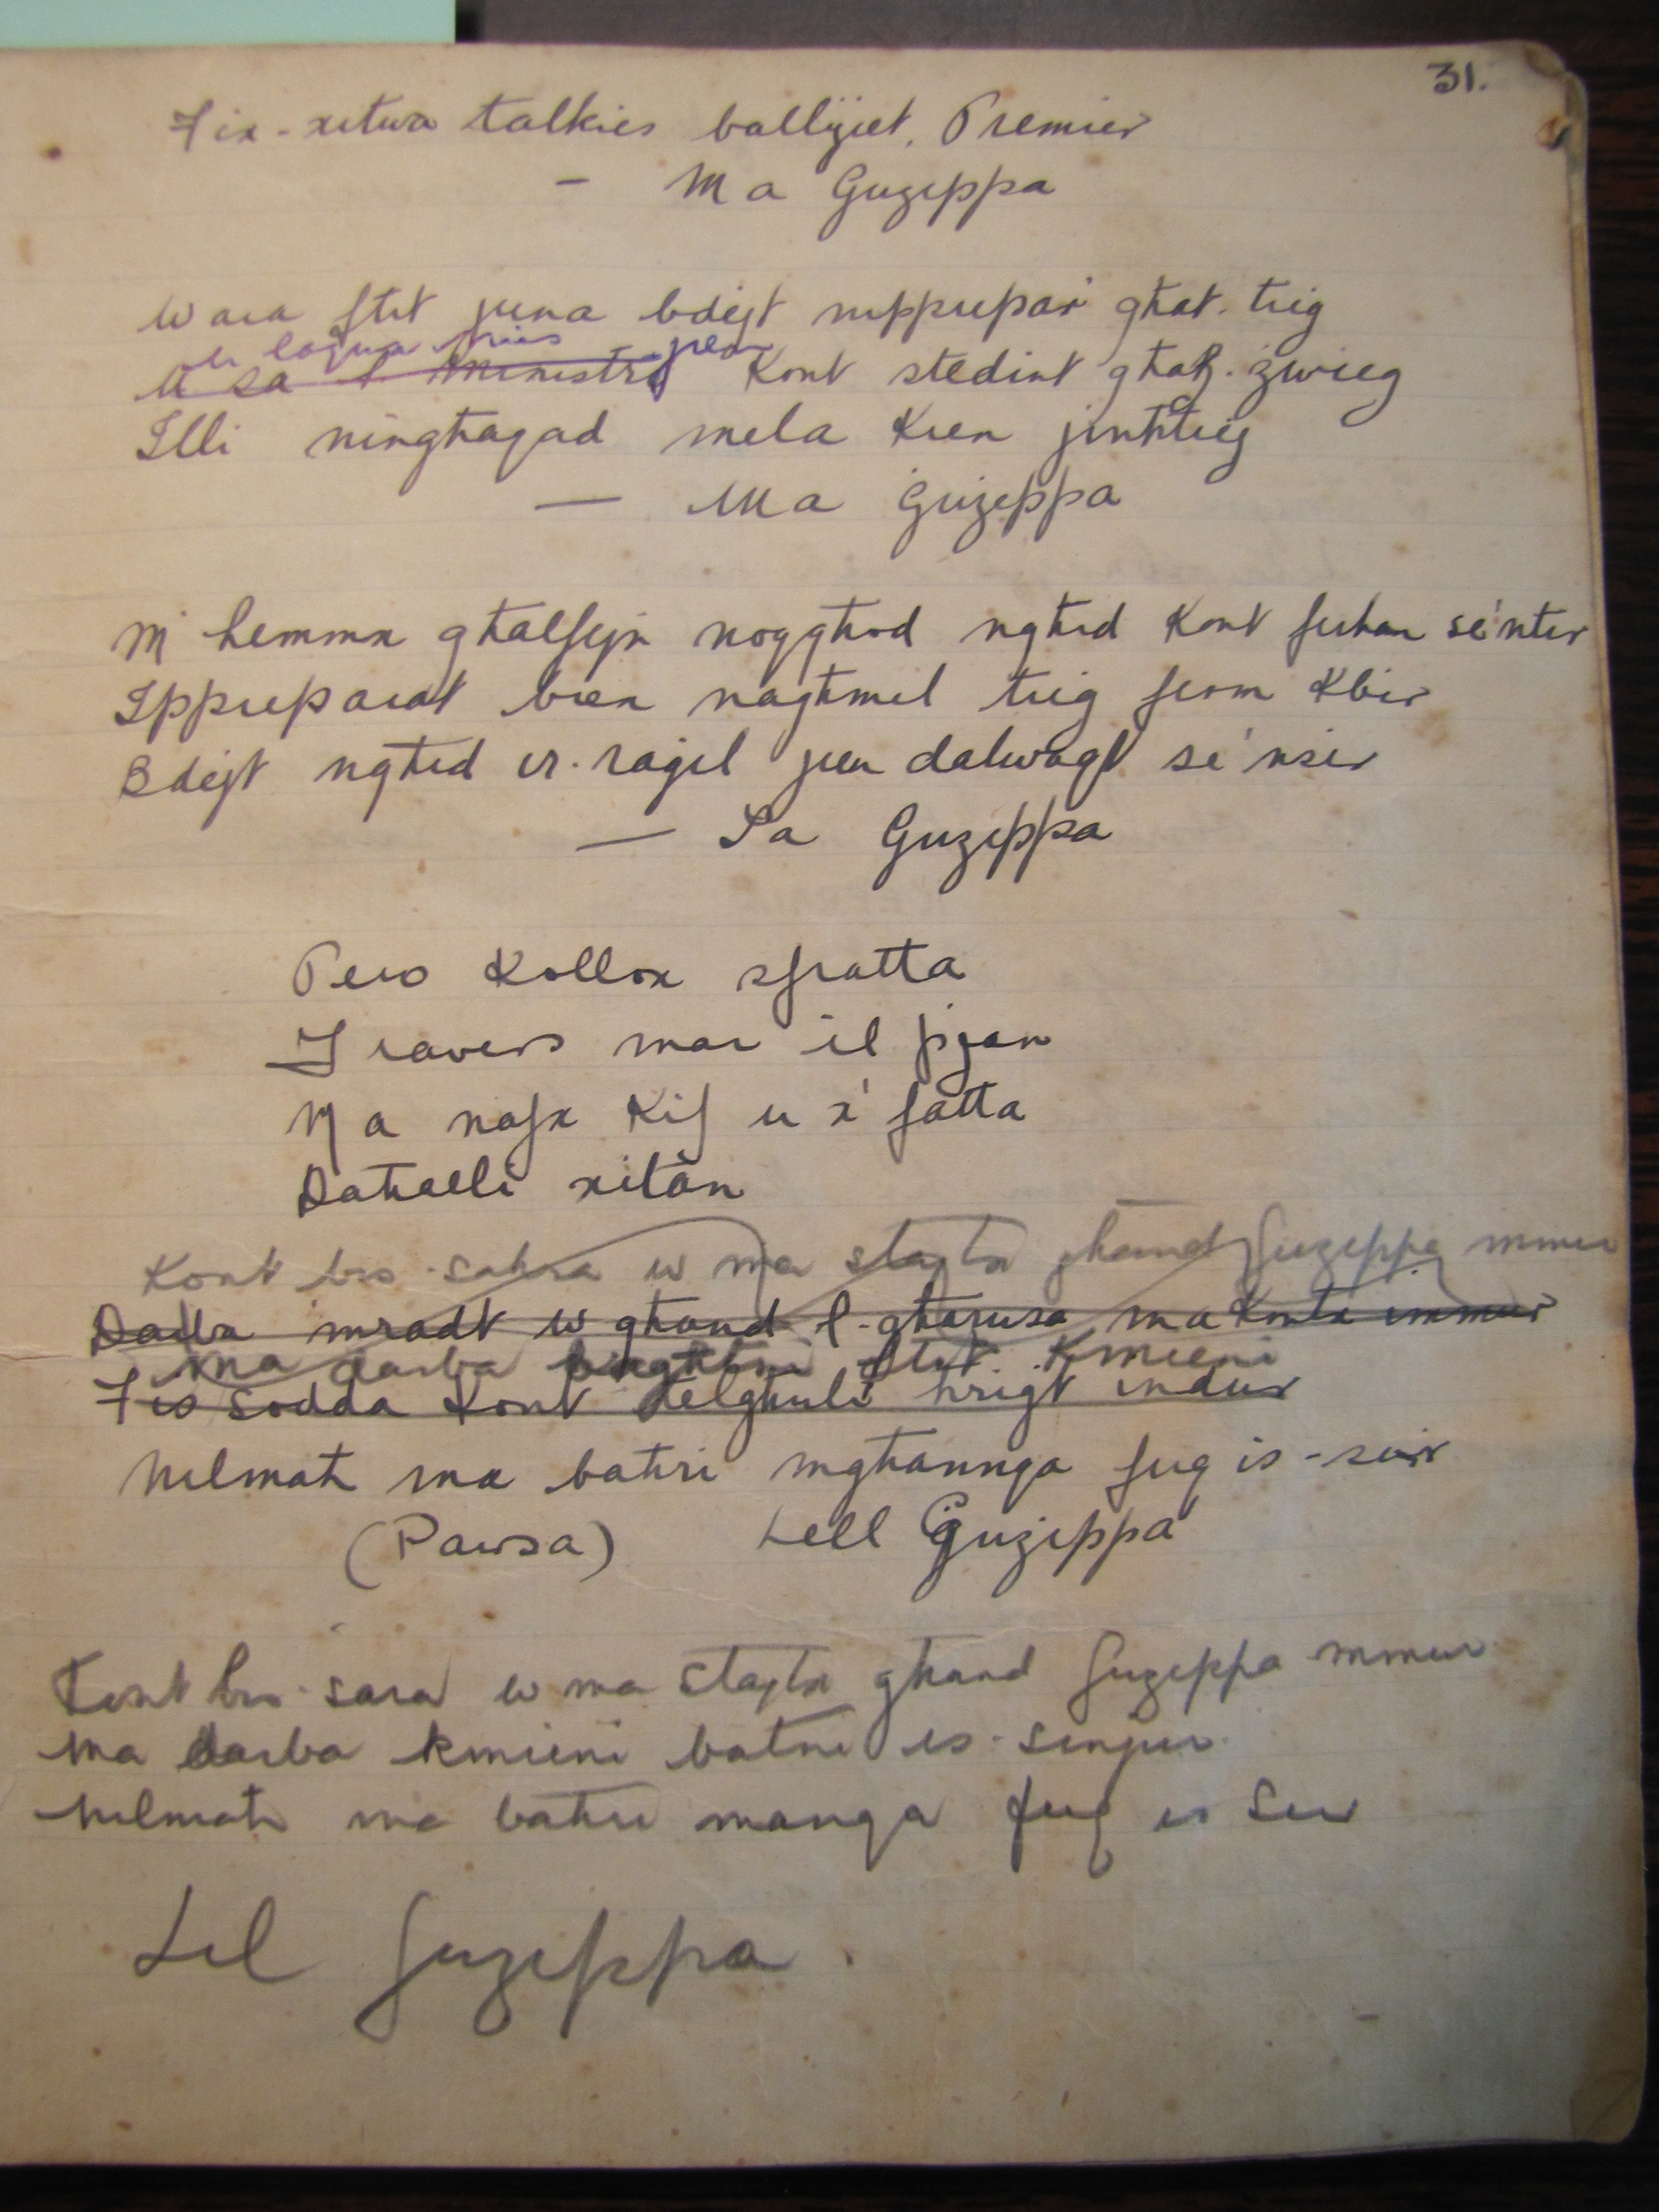 31.
Fix-xitwa talkies ballijiet, Premier
- Ma Guzeppa
Wara ftit jiena bdejt nipprepar għat-tieg
u laqwa nies jien
U sa l-Ministri kont stedint għaż-żwieg
Illi ningħaqad mela kien jinħtieġ
— Ma Ġużeppa
M'hemmx għalfejn noqgħod ngħid kont ferħan sé ntir
Ippreparat biex nagħmel tieg ferm kbir
Bdejt ngħid ir-raġel jien dalwaqt sé nsir
— Sa Guzeppa
Pero kollox sfratta
Travers mar il pjan
Ma nafx kif u x' fatta
Daħalli xitàn
Kont bis-saħħa w ma stajtx għand Guzeppa mmur
Darba mradt w għand l-għarusa ma kontx immur
ma darba ftit Kmieni
Fis sodda kont telgħuli ħriġt indur
Nilmaħ ma baħri mgħannqa fuq is-sur
(Pawsa) Lell Ġużeppa
Kont bis-saħa w ma stajtx għand Guzeppa mmur
Ma darba kmieni batni is-sinjur
Nilmaħ ma baħri manqa fuq is Sur
Lil Guzeppa.